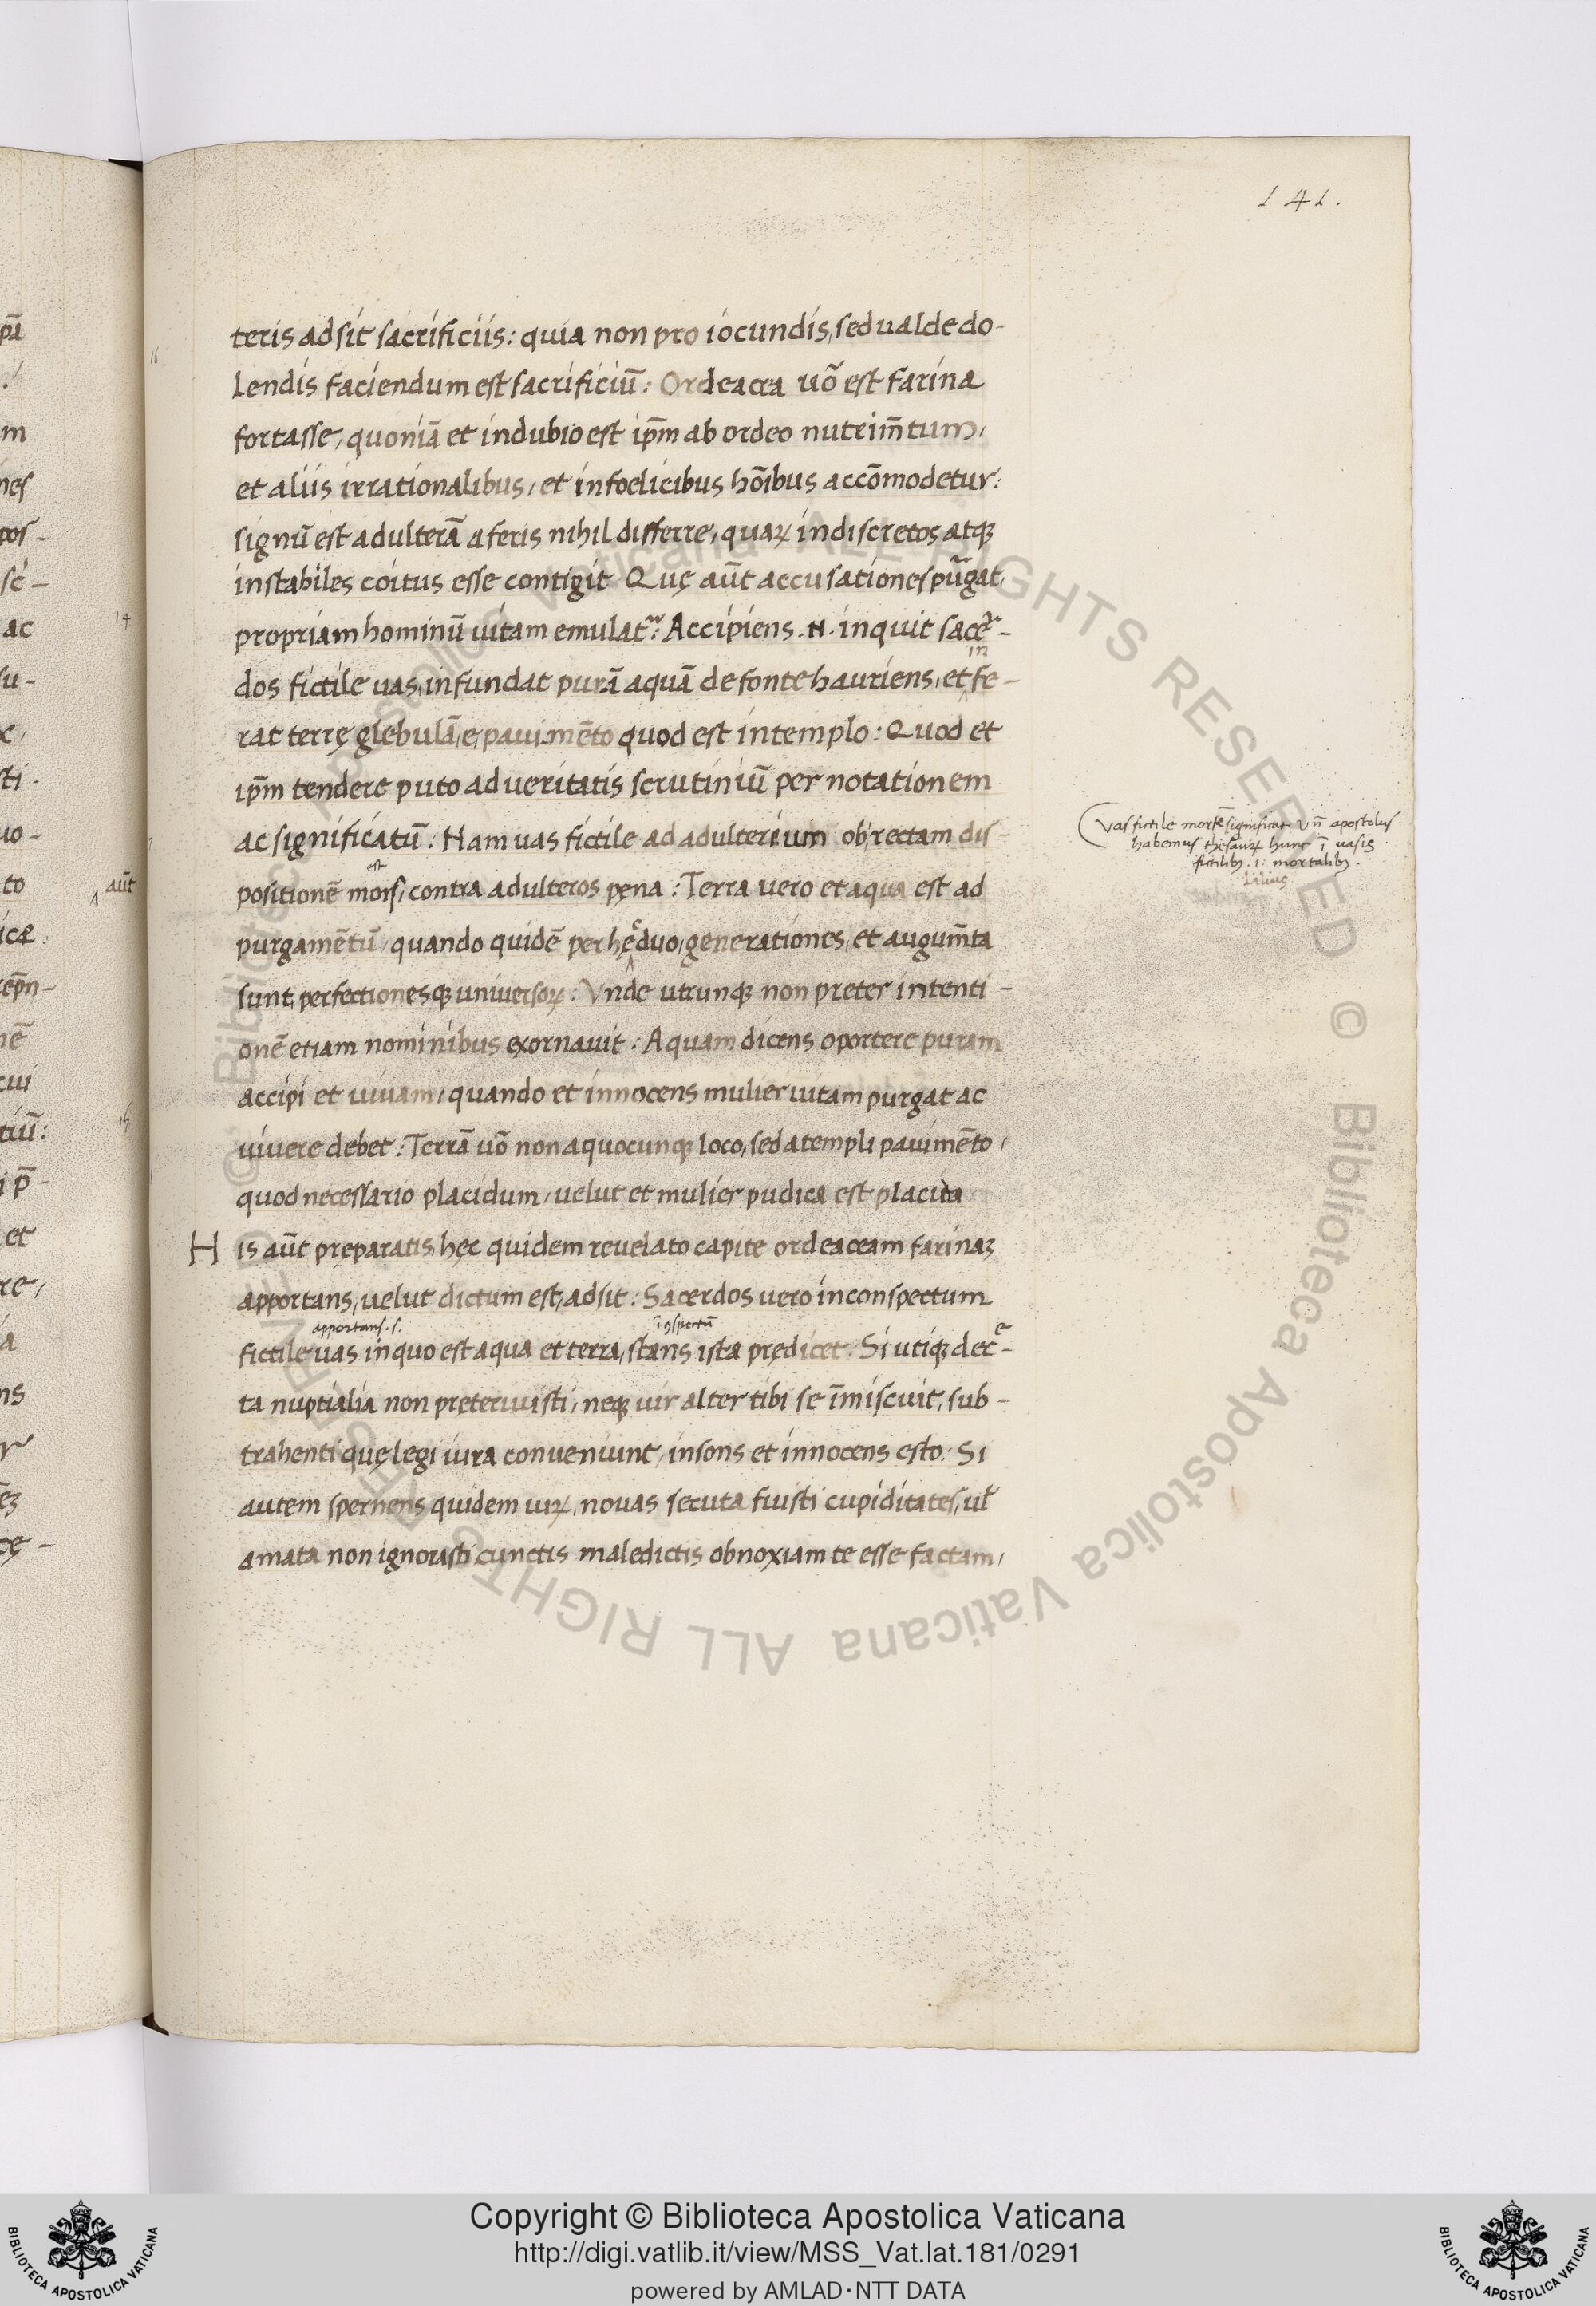 141.
teris adsit sacrificiis: quia non pro iocundis, sed ualde do-
lendis faciendum est sacrificiū: Ordeacea uō est farina
fortasse, quoniā et in dubio est ip̄m ab ordeo nutrim̄tum,
et aliis irrationalibus, et infoelicibus hōibus accōmodetur:
signū est adulterā a feris nihil differre, quaꝝ indiscretos atqꝫ
instabiles coitus esse contigit Quę aūt accusationes pūgat,
propriam hominū uitam emulatᵘʳ: Accipiens .N. inquit sacer-
in
dos fictile uas, infundat purā aquā de fonte hauriens, et fe-
rat terrę glebulā, e, pauimēto quod est in templo: Quod et
ip̄m tendere puto ad ueritatis scrutiniū per notationem
ac significatū: Nam uas fictile ad adulterium ob, rectam dis-
est
positionē mors, contra adulteros pęna: Terra uero et aqua est ad
purgamētū, quando quidē per hęc duo, generationes, et augum̄ta
sunt, perfectionesqꝫ universoꝝ: Vnde utrunqꝫ non preter intenti-
onē etiam nominibus exornauit: Aquam dicens oportere puram
accipi et uiuam, quando et innocens mulier uitam purgat ac
uiuere debet: Terrā uō non a quocunqꝫ loco, sed a templi pauimēto,
quod necessario placidum, uelut et mulier pudica est placita
His aūt pręparatis, hęc quidem reuelato capite ordeaceam farinaꝫ
apportans, uelut dictum est, adsit: Sacerdos uero in conspectum
apportans .s. īspectū
fictile uas in quo est aqua et terra, stans ista prędicet: Si utiqꝫ dece-
ta nuptialia non pręteriuisti, neqꝫ uir alter tibi se īmiscuit, sub-
trahenti quę legi iura conueniunt, insons et innocens esto: Si
autem spernens quidem uiꝝ, nouas secuta fuisti cupiditates, ul̄
amata non ignorasti cunctis maledictis obnoxiam te esse factam,
Vas fictile mortē significat Vn̄ apostolus
habemus thesauꝝ hunc ī uasis
fictilibꝫ .i: mortalibꝫ.
Lilius
pā
m
nes
pos-
sci-
ac
14
su-
sti.
uo-
to
aūt
nē
cui
tiū:
15
et
re,
ns
16
Copyright © Biblioteca Apostolica Vaticana
http://digi.vatlib.it/view/MSS_Vat.lat.181/0291
powered by AMLAD·NTT DATA
BIBLIOTECA APOSTOLICA VATICANA
BIBLIOTECA APOSTOLICA VATICANA
© Biblioteca Apostolica Vaticana ALL RIGHTS RESERVED © Biblioteca Apostolica Vaticana ALL RIGHTS RESERVED